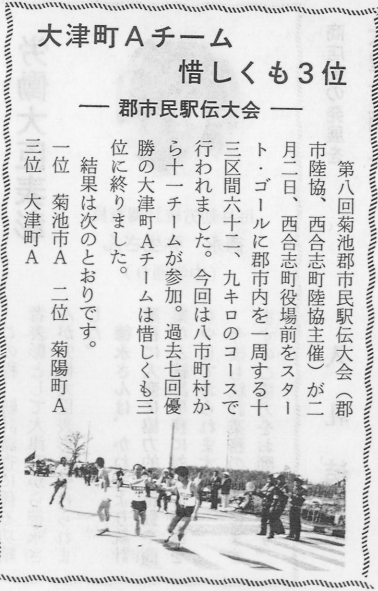 大津町Aチーム
惜しくも3位
― 郡市民駅伝大会 ―
第八回菊池郡市民駅伝大会（郡
市陸協、西合志町陸協主催）が二
月二日、西合志町役場前をスター
ト・ゴールに郡市内を一周する十
三区間六十二、九キロのコースで
行われました。今回は八市町村か
ら十一チームが参加。過去七回優
勝の大津町Aチームは惜しくも三
位に終りました。
結果は次のとおりです。
一位　菊池市A　二位　菊陽町A
三位　大津町A